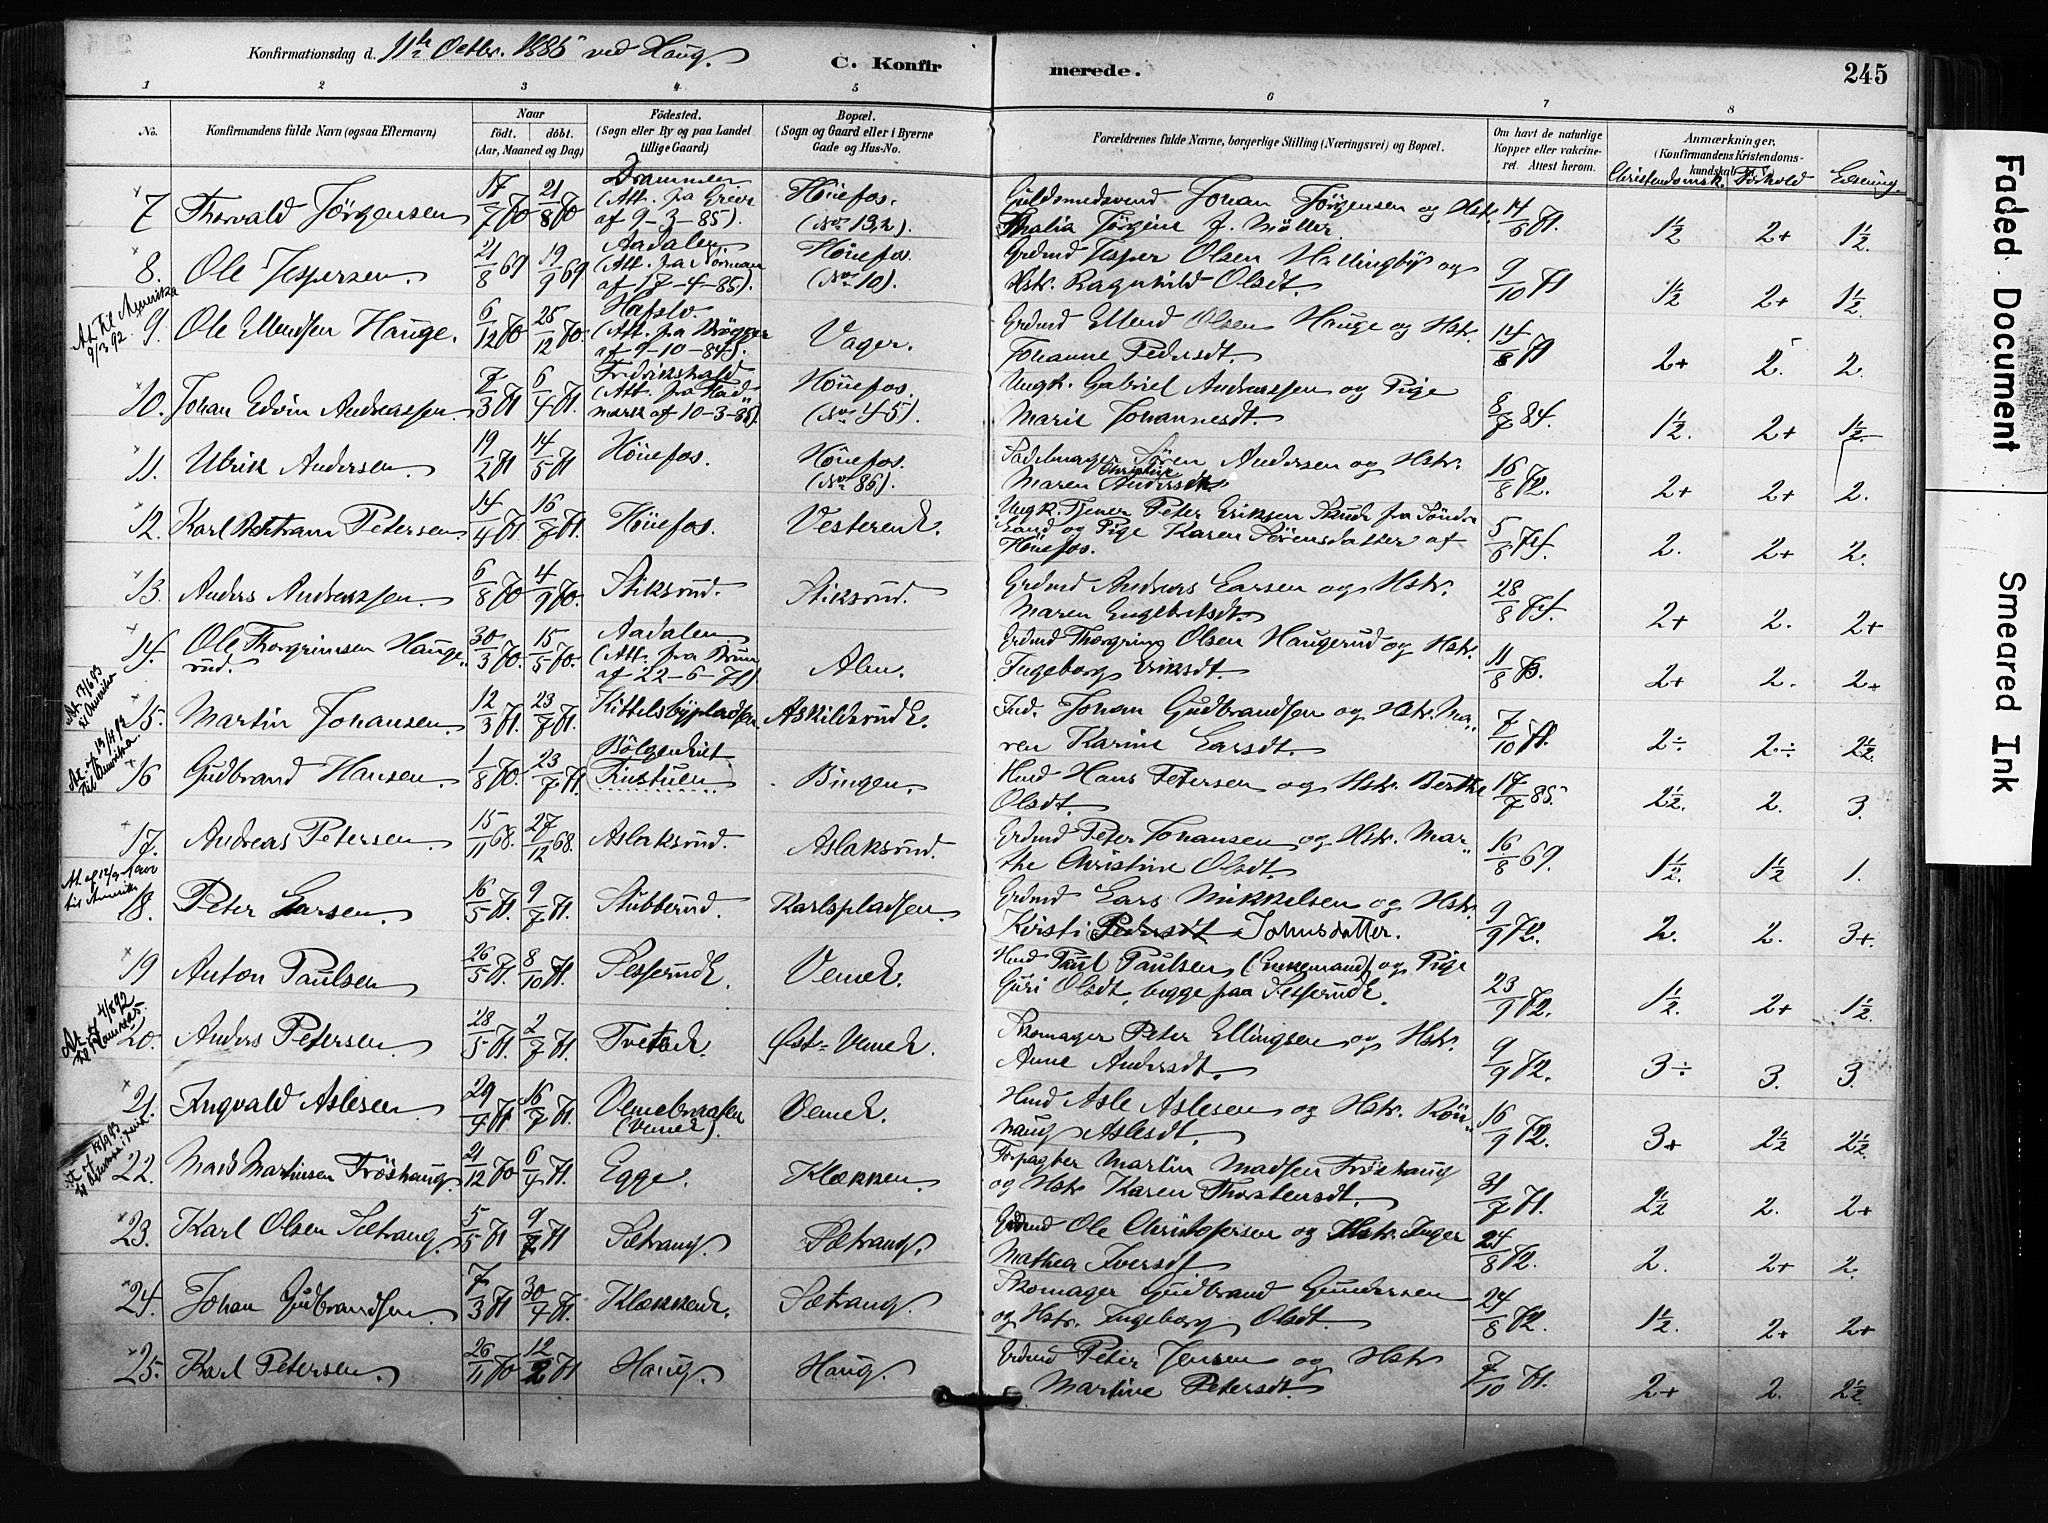 Konfirmationsdag d. 11te Octbr. 1885 ved Haug. C. Konfirmerede. 245
1 2 3 4 5 6 7 8
No. Konfirmandens fulde Navn (ogsaa Efternavn) Naar født. døbt. (Aar, Maaned og Dag) Födested. (Sogn eller By og paa Landet tillige Gaard) Bopæl. (Sogn og Gaard eller i Byerne Gade og Hus-No. Forældrenes fulde Navne, borgerlige Stilling (Næringsvei) og Bopæl. Om havt de naturlige Kopper eller vakcineret. Attest herom. Anmærkninger. (Konfirmandens Kristendomskundskab
Christendomsk. Forhold Læsning.
7 Thorvald Jörgensen 17/7 70 21/8 70 Drammen (Att. fra Greve af 9-3-85). Hönefos. (No 132). Guldsmedsvend Johan Jörgensen og Hstr. Thalia Jörgine f. Möller. 14/6 71. 1½ 2+ 1½.
8. Ole Jespersen 21/8 69 19/9 69 Aadalen. (Att. fra Norman af 17-4-85). Hönefos. (No 10). Grdmd Jesper Olsen Hallingby og Hstr. Ragnhild Olsdt. 9/10 71 1½ 2+ 1½.
At. til Amerika 9/3 92
9. Ole Ellendsen Hauge. 6/12 70 25/12 70. Hafslo. (Att. fra Brögger af 9-10-84). Vager. Grdmd Ellend Olsen Hauge og Hstr. Johanne Pedersdt. 14/8 71 2+ 2. 2.
10. Johan Edvin Andreassen 7/3 71 6/4 71. Fredrikshald (Att. fra Hadmark af 10-3-85). Hönefos. (No 45). Ungk. Gabriel Andreassen og Pige Marie Johannesdt. 8/7 84. 1½. 2+ 1½.
11. Ulrik Andersen 19/2 71 14/5 71 Hönefos. Hönefos. (No 86). Sadelmager Sören Andersen og Hstr. Maren Christine Andersdt. 16/8 72. 2+ 2+ 2.
12. Karl Petersen. 14/4 71. 16/7 71. Hönefos. Vesterenk. Ungk. Tjener Peter Eriksen Skuds fra Söndre Land og Pige Karen Sörensdatter af Hönefos. 5/6 74. 2. 2+ 2.
13. Anders Andreassen. 6/8 70 4/9 70. Stiksrud. Stiksrud. Grdmd Andreas Larsen og Hstr. Maren Engebretsdt. 28/8 74. 2+ 2. 2+
14. Ole Thorgrimsen Haugerud. 30/3 70. 15/5 70. Aadalen (Att. fra Bruun af 22-6-71) Alm. Grdmd Thorgrim Olsen Haugerud og Hstr. Ingeborg Eriksdt. 11/8 2+ 2. 2+
At. 17/6 93 til Amerika
15. Martin Johansen 12/3 71. 23/7 71. Kittelsbypladsen. Askildsrudk. Ind. Johan Gudbrandsen og Hstr. Maren Karine Larsdt. 7/10 71. 2÷ 2÷ 2½.
At. af 13/4 92 til Amerika.
16 Gudbrand Hansen 1/8 70. 23/7 71. Bölgenhiet Kustuen Bingen. Hmd Hans Petersen og Hstr. Berthe Olsdt. 17/7 85. 2½. 2. 3.
17. Andreas Petersen. 15/11 68. 27/12 68. Aslaksrud. Aslaksrud. Grdmd Peter Johansen og Hstr. Marthe Christine Olsdt. 16/8 69. 1½. 1½ 1.
18. Peter Larsen. 16/5 71. 9/7 71. Stubberud. Karlspladsen. Grdmd Lars Mikkelsen og Hstr. Kirsti Pedersdt Johnsdatter. 9/9 72. 2. 2. 3+.
19 Anton Paulsen 26/5 71. 8/10 71. Sesserudk. Vemek. Hmd Paul Paulsen (Enkemand) og Pige Guri Olsdt, begge paa Sesserudk. 23/9 72. 1½. 2+ 1½
At. af 4/6 92 til Kansas.
20. Anders Petersen. 28/5 71. 2/7 71. Tvetenk. Øst-Vemek. Skomager Peter Ellingsen og Hstr. Anne Andersdt. 9/9 72. 3÷ 3. 3.
21. Ingvald Aslesen 29/4 71 16/7 71. Vemebraaten (Vemek). Vemek. Hmd Asle Aslesen og Hstr. Rönnaug Aslesdt. 16/9 72. 3+ 2½ 2½.
22. Mads Martinsen Fröshaug. 21/12 70 6/4 71. Egge. Klækken. Forpagter Martin Madsen Fröshaug og Hstr Karen Thorstensdt. 31/7 71. 2½ 2. 2+
23. Karl Olsen Sætrang. 5/5 71 9/7 71 Sætrang. Sætrang. Grdmd Ole Christofersen og Hstr. Inger Mathea Iversdt 24/8 72. 2. 2+ 2.
24. Johan Gudbrandsen. 7/3 71 30/4 71. Klækkenk. Sætrang. Skomager Gudbrand Gundersen og Hstr. Ingeborg Olsdt. 24/8 72. 1½. 2+ 2+
25. Karl Petersen. 26/11 70 12/2 71 Haug. Haug. Grdmd Peter Jensen og Hstr Martine Petersdt. 7/10 71. 2+ 2. 2½.
Faded Document
Smeared Ink